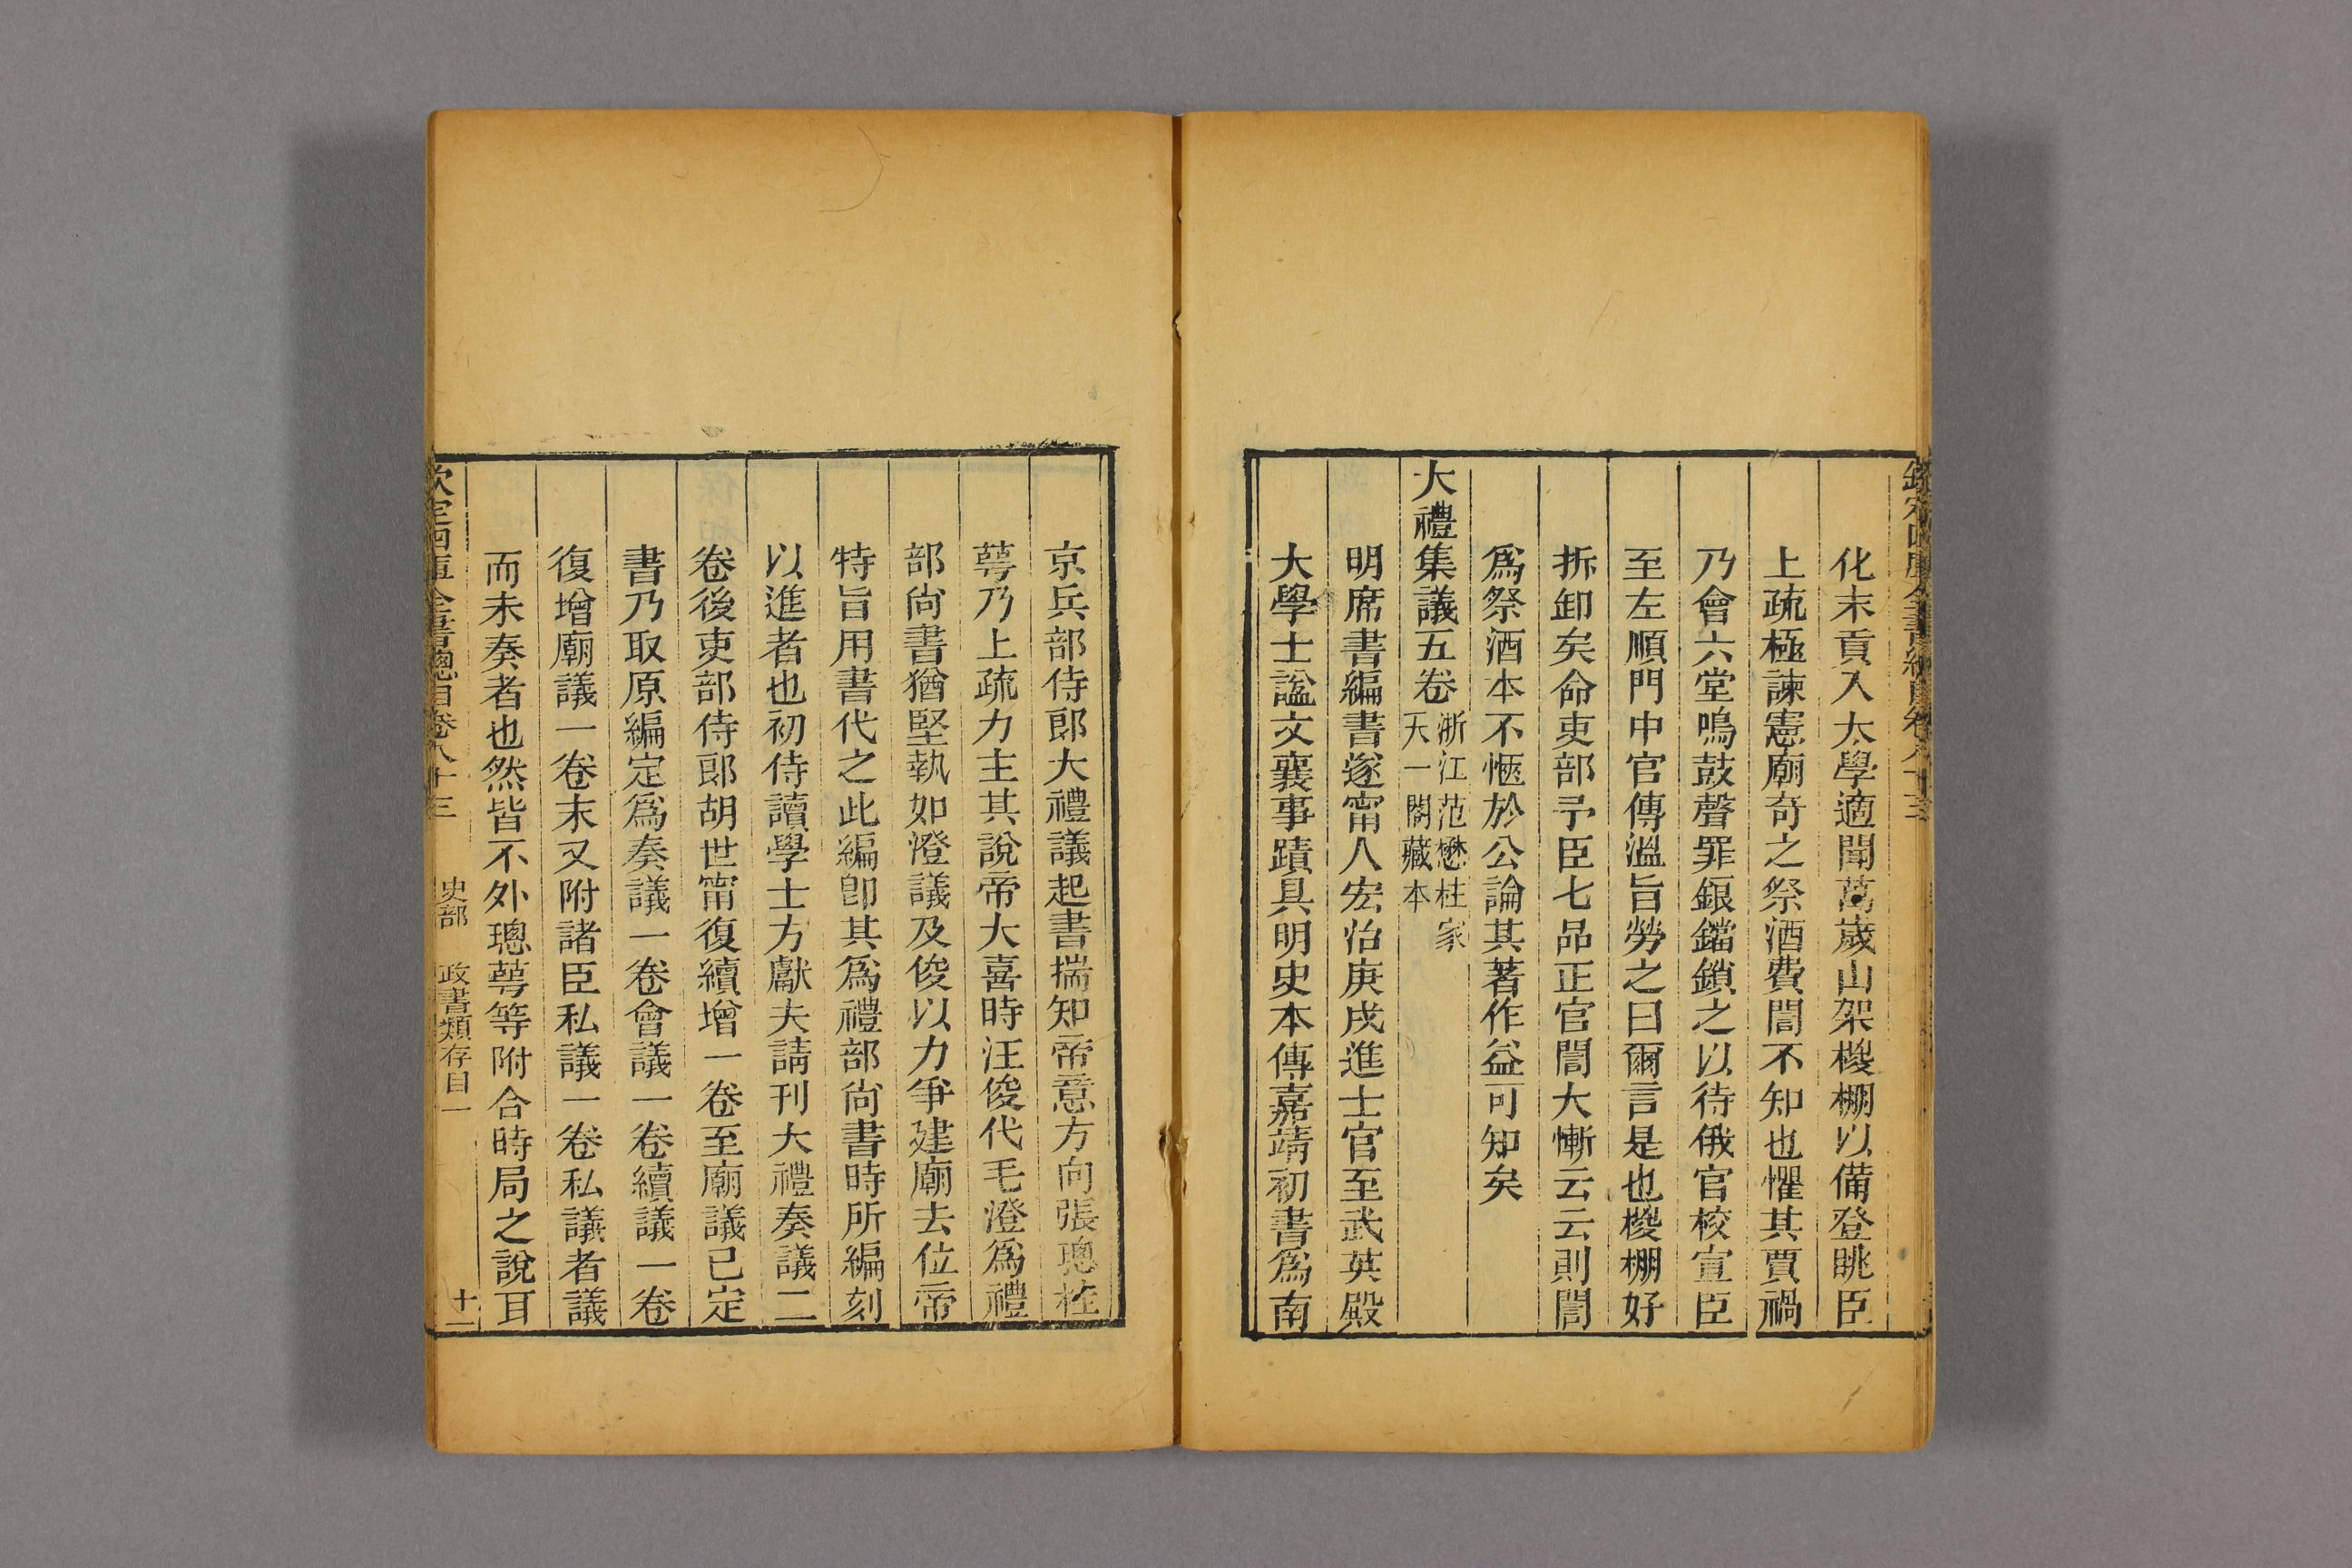 欽定四庫全書總目卷八十三
化末貢入太學適聞萬歲山架椶棚以備登眺臣
上疏極諫憲廟奇之祭酒費誾不知也懼其賈禍
乃會六堂鳴鼓聲罪鋃鐺鎖之以待俄官校宣臣
至左順門中官傳溫旨勞之曰爾言是也椶棚好
拆卸矣命吏部予臣七品正官誾大慚云云則誾
爲祭酒本不愜於公論其著作益可知矣
大禮集議五卷浙江范懋柱家天一閣藏本
明席書編書遂甯人宏治庚戌進士官至武英殿
大學士謚文襄事蹟具明史本傳嘉靖初書爲南
京兵部侍郎大禮議起書揣知帝意方向張璁桂
萼乃上疏力主其說帝大喜時汪俊代毛澄爲禮
部尙書猶堅執如澄議及俊以力爭建廟去位帝
特旨用書代之此編卽其爲禮部尙書時所編刻
以進者也初侍讀學士方獻夫請刊大禮奏議二
卷後吏部侍郎胡世甯復續增一卷至廟議已定
書乃取原編定爲奏議一卷會議一卷續議一卷
復增廟議一卷末又附諸臣私議一卷私議者議
而未奏者也然皆不外璁萼等附合時局之說耳
欽定四庫全書總目卷八十三 史部 政書類存目一 十二